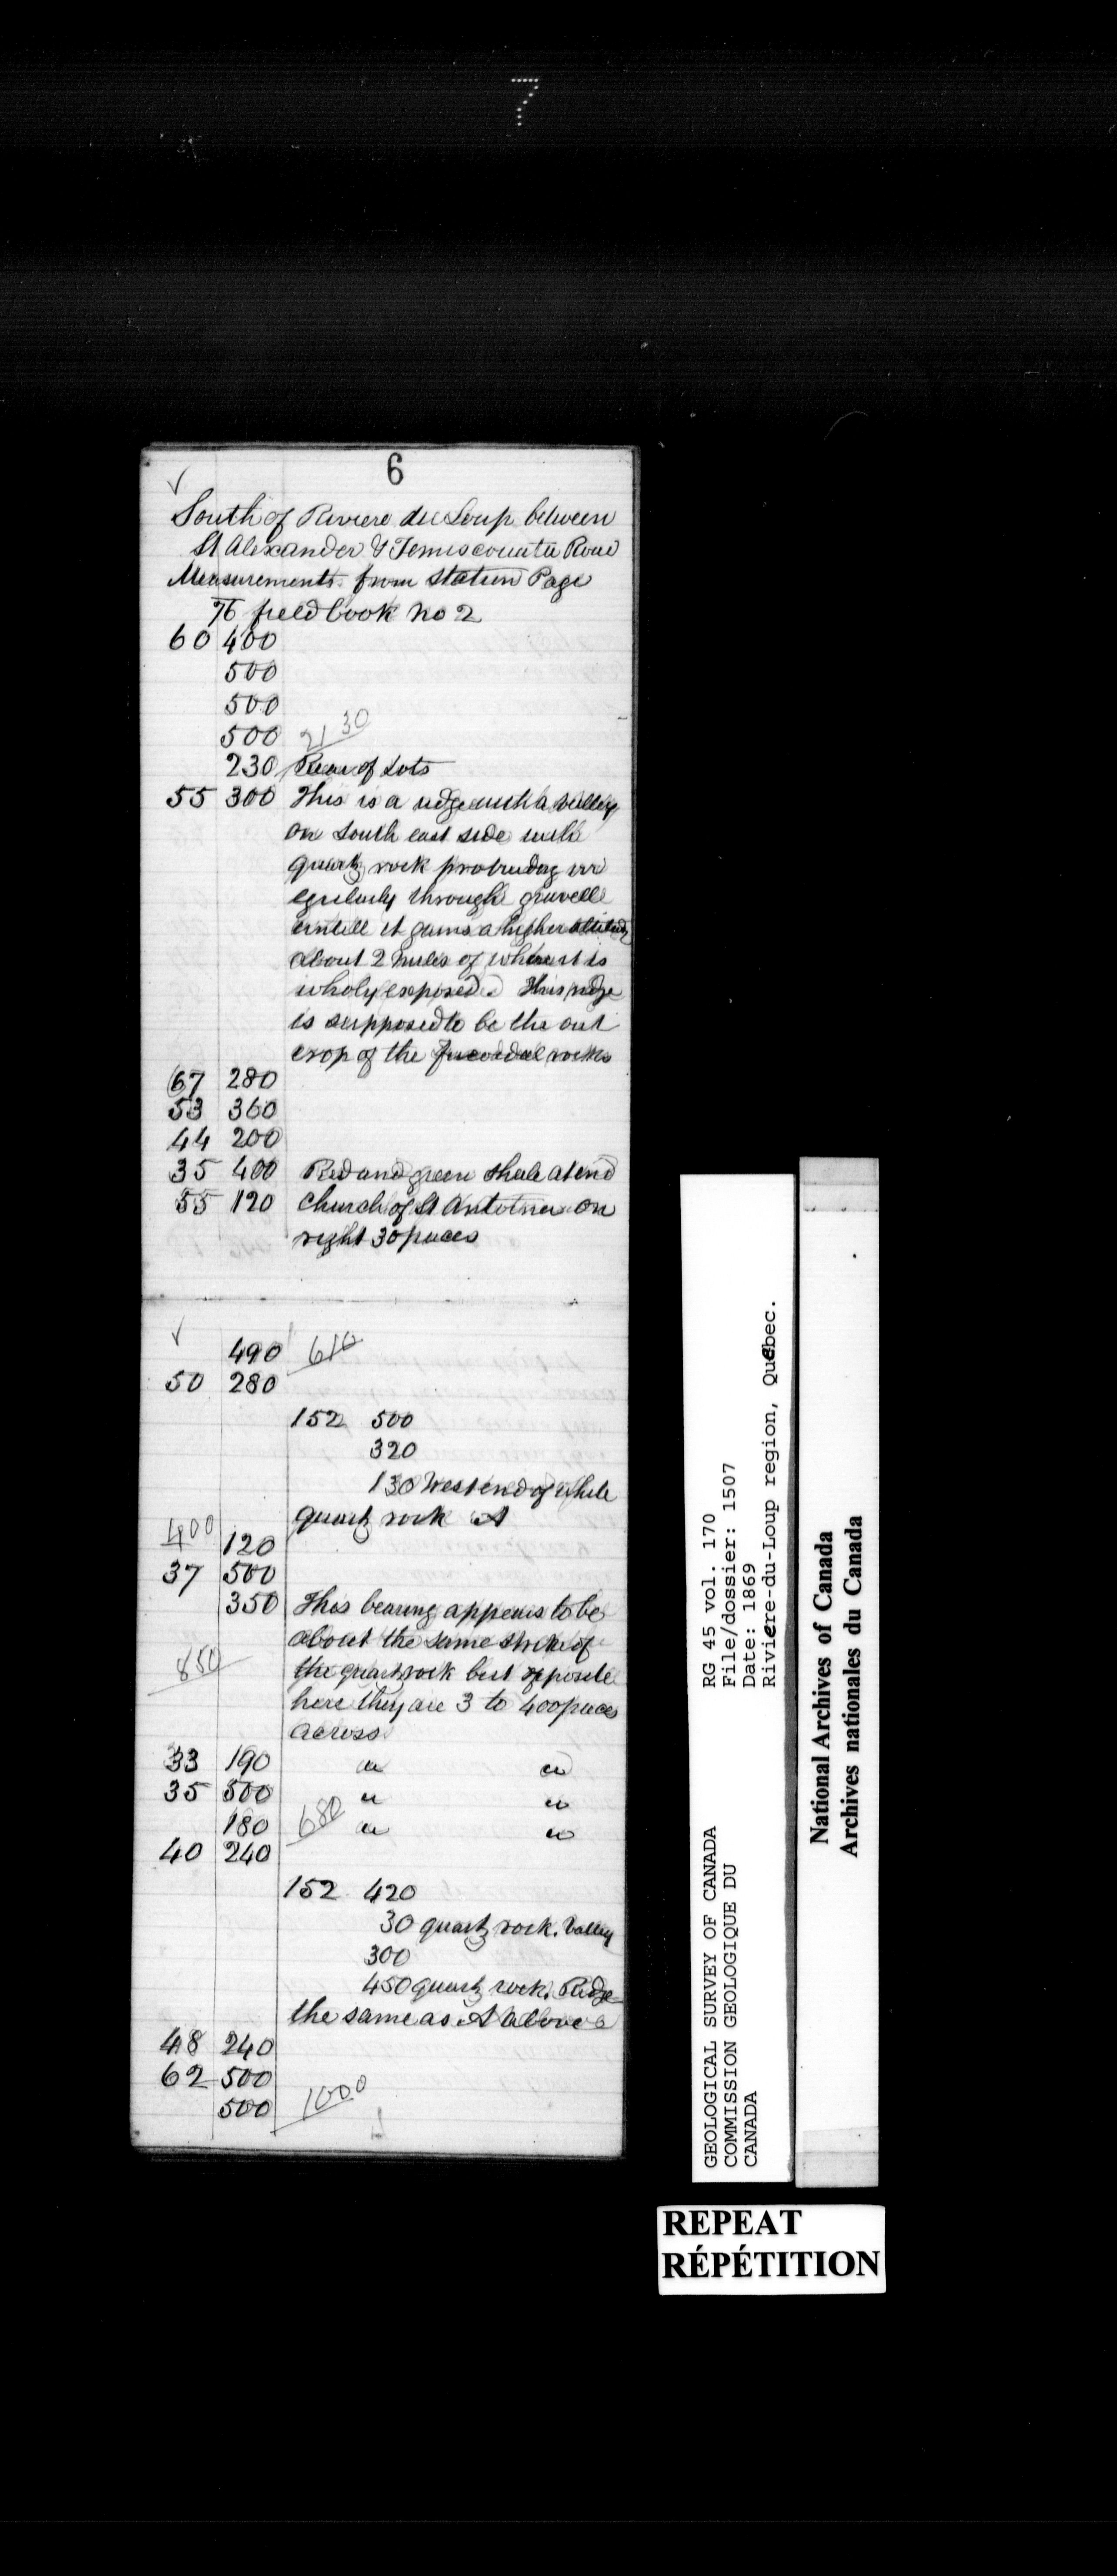 7
6
✓
South of Riviere du Loup between
St Alexander & Temiscouata Road
Measurements from station Page
76 field book no 2
60 400
500
500
500 2130
230 Rear of Lots
55 300 This is a ridge with a valley
on south east side with
quartz rock protruding irr
egularly through gravelle
untill it gains a higher altitude
about 2 miles of where it is
wholy exposed. This ridge
is supposed to be the out
crop of the fucoidal rocks
67 280
53 360
44 200
35 400 Red and green shale at end
55 120 Church of St on
right 30 paces
✓
490 610
50 280
152 500
320
130 West end of white
quartz rock A
400 120
37 500
350 This bearing appears to be
about the same strike of
850 the quartz rock but opposite
here they are 3 to 400 paces
across
33 190 " "
35 500 " "
180 680 " "
40 240
152 420
30 quartz rock. Valley
300
450 quartz rock. Ridge
the same as A above
48 240
62 500
500 1000
GEOLOGICAL SURVEY OF CANADA
COMMISSION GEOLOGIQUE DU
CANADA
RG 45 vol. 170
File/dossier: 1507
Date: 1869
Riviere-du-Loup region, Quebec.
National Archives of Canada
Archives nationales du Canada
REPEAT
RÉPÉTITION